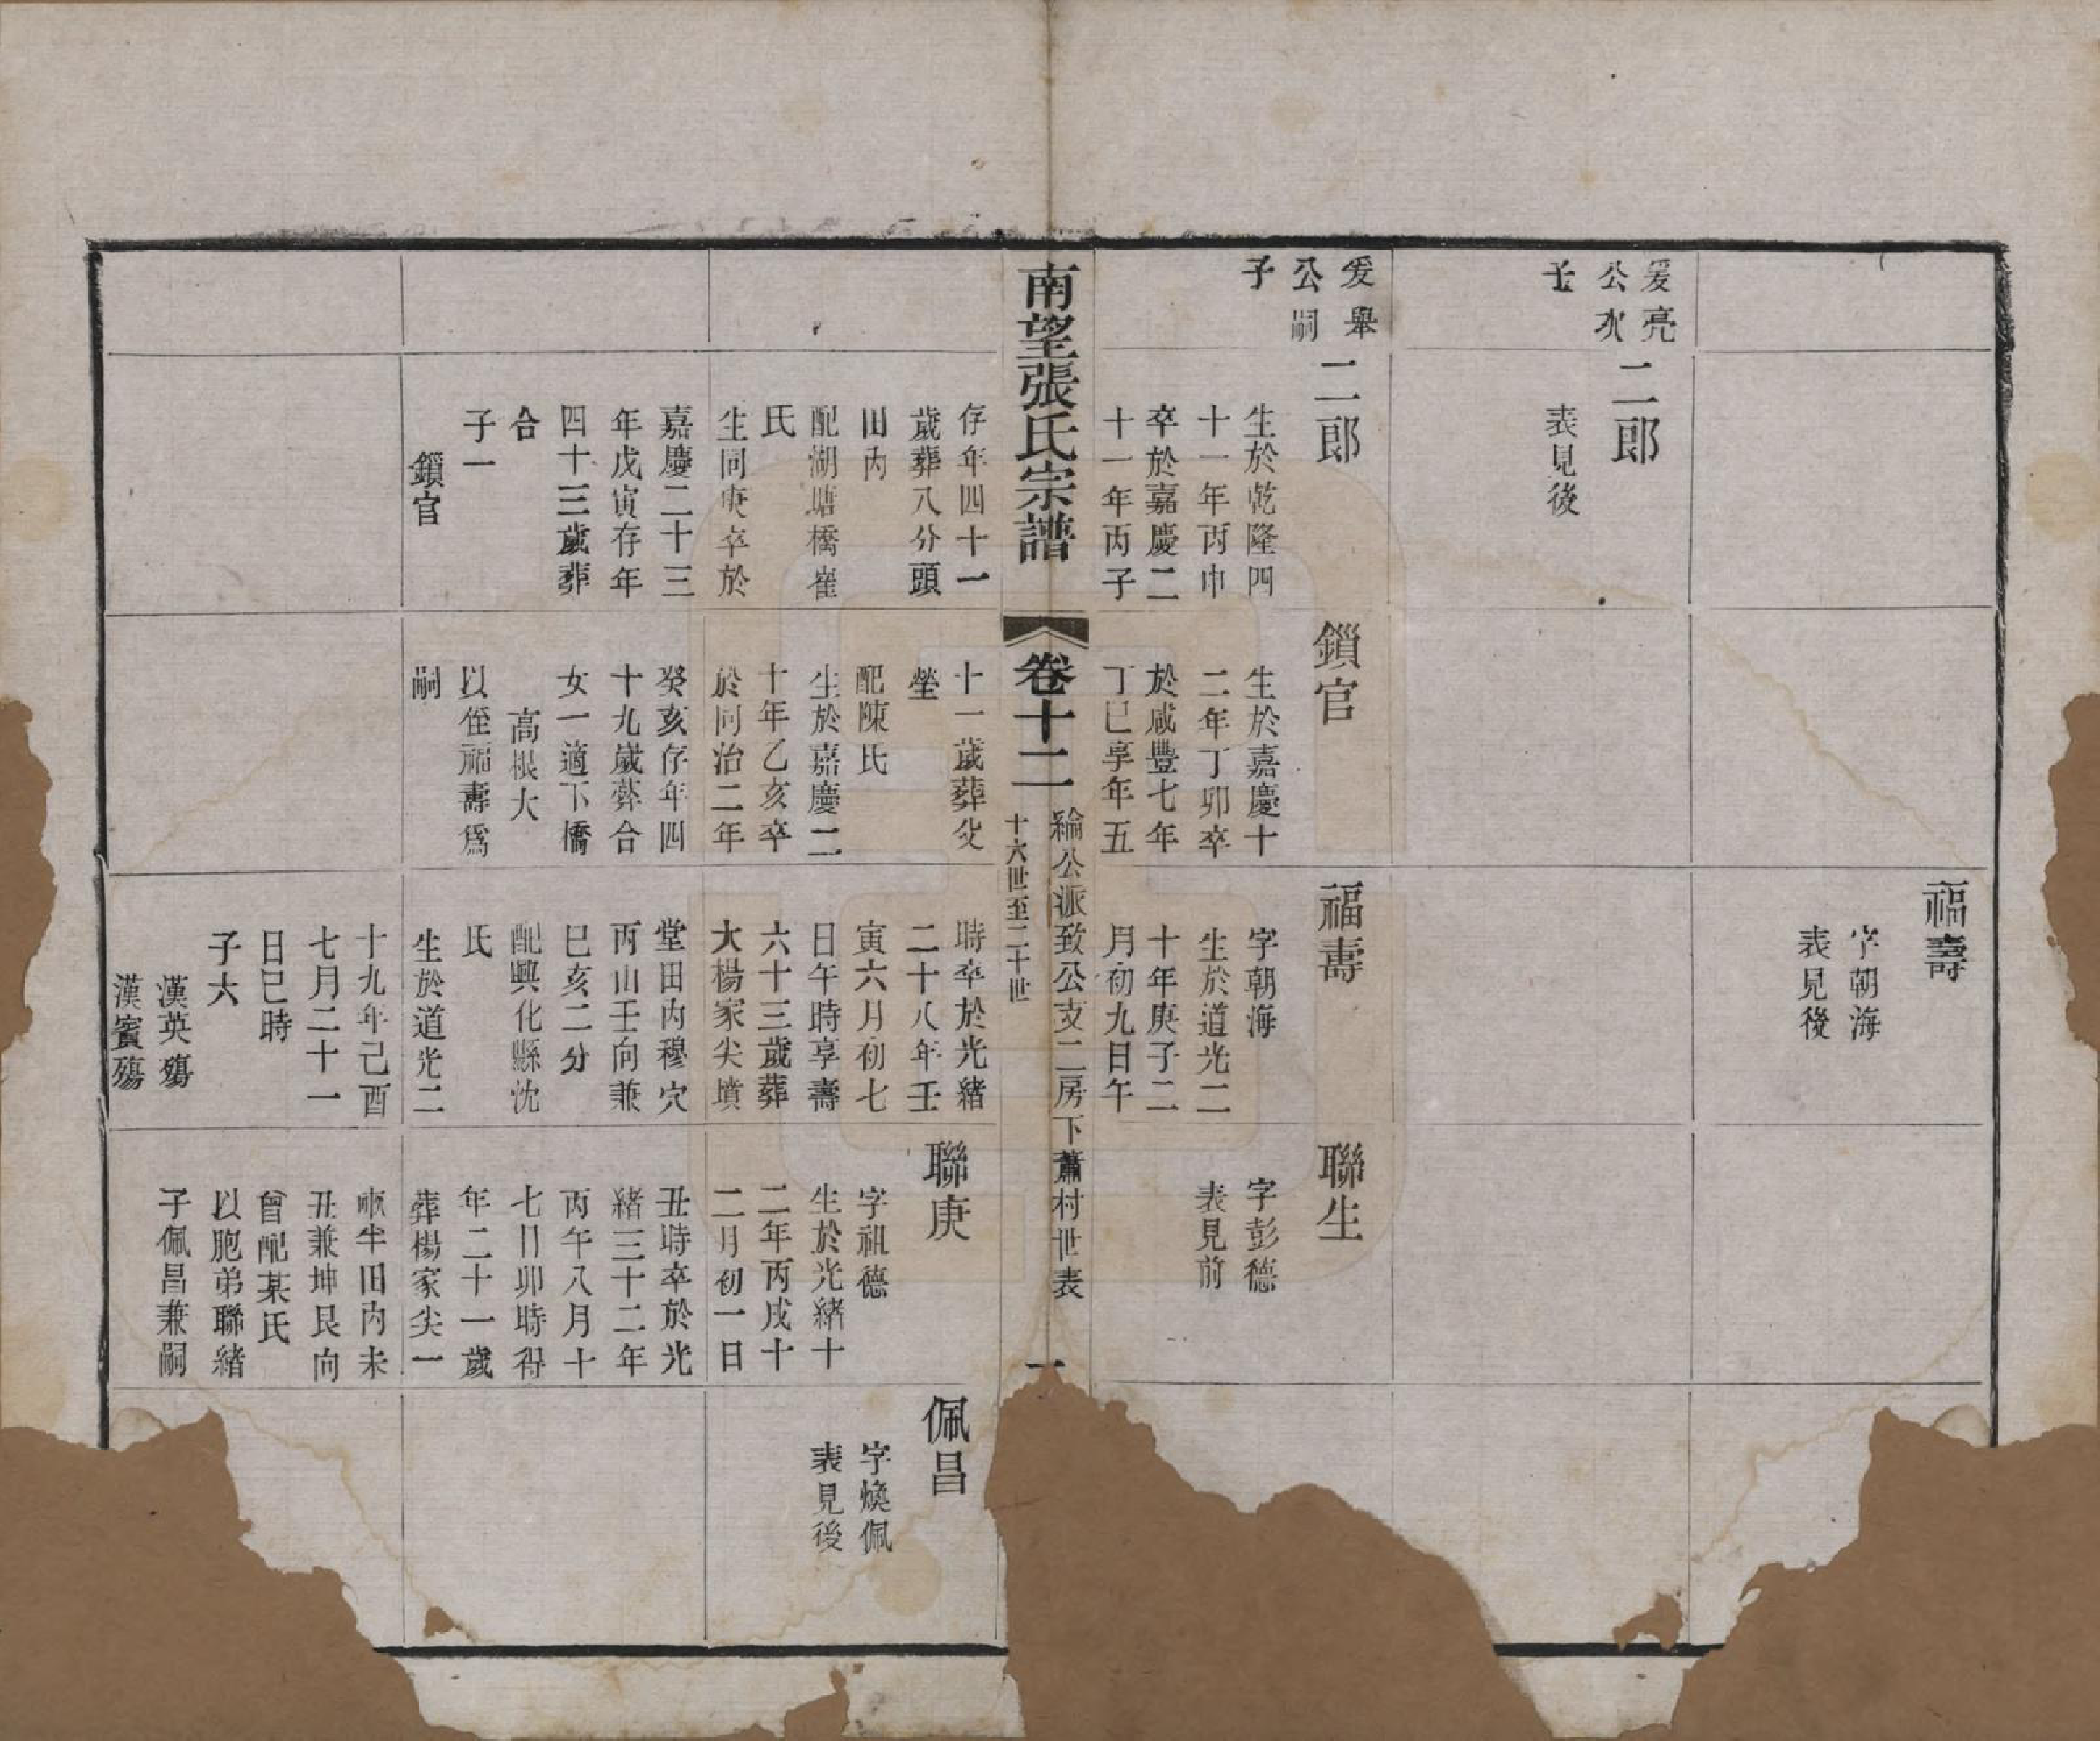 福壽
字朝海
表見後
爰亮
公次
子
二郎
表見後
爰舉
公嗣
子
二郎
生於乾隆四
十一年丙申
卒於嘉慶二
十一年丙子
鎖官
生於嘉慶十
二年丁卯卒
於咸豐七年
丁巳享年五
福壽
字朝海
生於道光二
十年庚子二
月初九日午
聯生
字彭德
表見前
南望張氏宗譜
卷十二
綸公派致公支二房下蕭村世表
十六世至二十世
一
存年四十一
歲葬八分頭
田內
配湖塘橋崔
氏
生同庚卒於
嘉慶二十三
年戊寅存年
四十三歲葬
合
子一
鎖官
十一歲葬父
塋
配陳氏
生於嘉慶二
十年乙亥卒
於同治二年
癸亥存年四
十九歲葬合
女一適下橋
高根大
以侄福壽爲
嗣
時卒於光緒
二十八年壬
寅六月初七
日午時享壽
六十三歲葬
大楊家尖墳
堂田內穆穴
丙山壬向兼
巳亥二分
配興化縣沈
氏
生於道光二
十九年己酉
七月二十一
日巳時
子六
漢英殤
漢賓殤
聯庚
字祖德
生於光緒十
二年丙戌十
二月初一日
丑時卒於光
緒三十二年
丙午八月十
七日卯時得
年二十一歲
葬楊家尖一
畝半田內未
丑兼坤艮向
曾配某氏
以胞弟聯緒
子佩昌兼嗣
佩昌
字煥佩
表見後